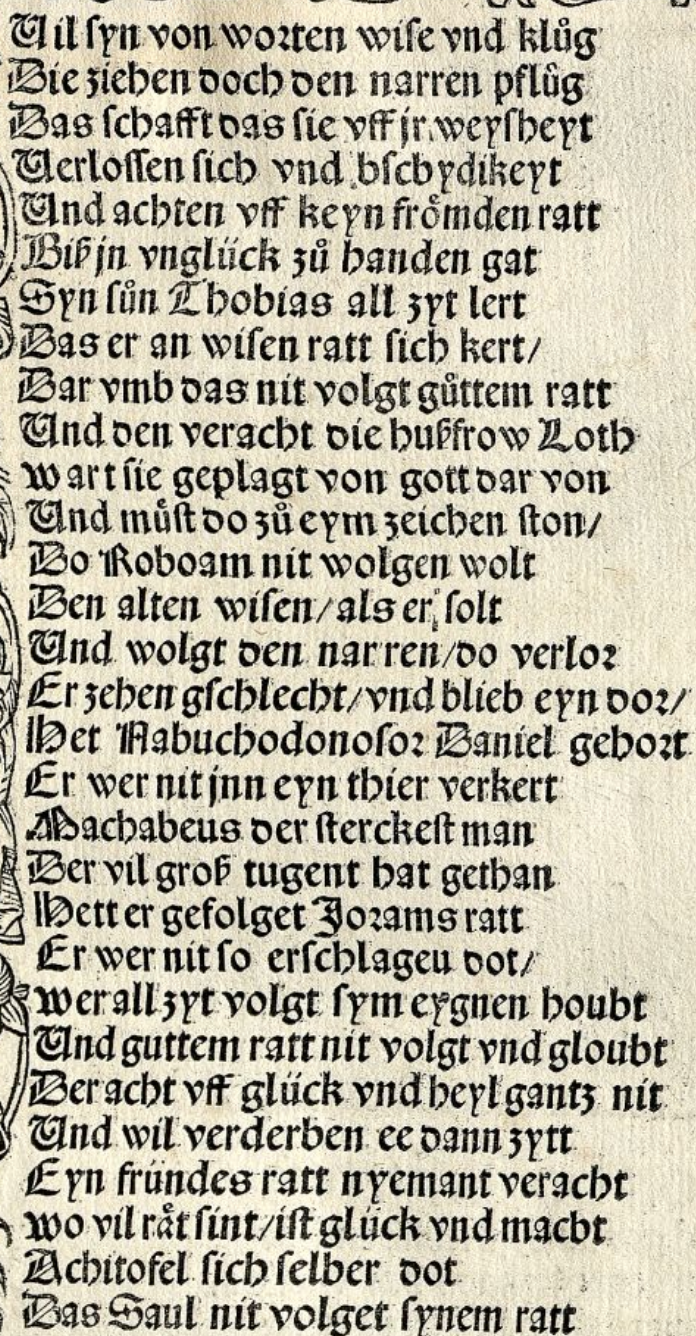 Uil ſyn von worten wiſe vnd klůg
Die ziehen doch den narren pflůg
Das ſchafft das ſie vff jr weyſheyt
Uerloſſen ſich vnd bſchydikeyt
Und achten vff keyn froͤmden ratt
Biß jn vnglück zů handen gat
Syn ſůn Thobias all zyt lert
Das er an wiſen ratt ſich kert/
Dar vmb das nit volgt gůttem ratt
Und den veracht die hußfrow Loth
wart ſie geplagt von gott dar von
Und můſt do zů eym zeichen ſton/
Do Roboam nit wolgen wolt
Den alten wiſen/als er ſolt
Und wolgt den narren/do verlor
Er zehen gſchlecht/vnd blieb eyn dor/
Het Nabuchodonoſor Daniel gehort
Er wer nit jnn eyn thier verkert
Machabeus der ſterckeſt man
Der vil groß tugent hat gethan
Hett er gefolget Jorams ratt
Er wer nit ſo erſchlageu dot/
wer all zyt volgt ſym eygnen houbt
Und guttem ratt nit volgt vnd gloubt
Der acht vff glück vnd heyl gantz nit
Und wil verderben ee dann zytt
Eyn fründes ratt nyemant veracht
wo vil raͤt ſint/iſt glück vnd macht
Achitofel ſich ſelber dot
Das Saul nit volget ſynem ratt